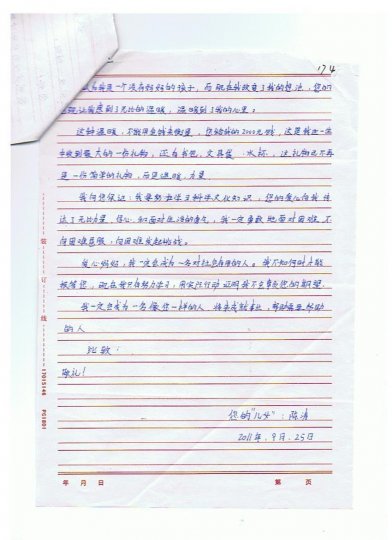 174
以为我是一个没有妈妈的孩子,而现在我改变了我的想法,您的
出现让我感到了无比的温暖,温暖到了我的心里。
这种温暖,不能用金钱来衡量,您给我的2000元钱,这是我出生
收到最大的一份礼物,还有书包,文具盒,水杯,这礼物已不再
是一份简单的礼物,而是温暖,力量。
我向您保证:我要努力学习科学文化知识,您的爱心向我传
达了无比力量,信心,和面对生活的勇气,我一定勇敢地面对困难,不
向困难屈服,向困难发起挑战。
爱心妈妈,我一定会成为一名对社会有用的人。我不知何时才能
报答您,现在我只有努力学习,用实际行动证明我不会辜负您的期望.
我一定会成为一名像您一样的人,将来成就事业,帮助需要帮助
的人
此致:
敬礼!
您的"儿女":陈涛
2011年.9月.25日
装订线
17015146
PG1801
年 月 日
第 页